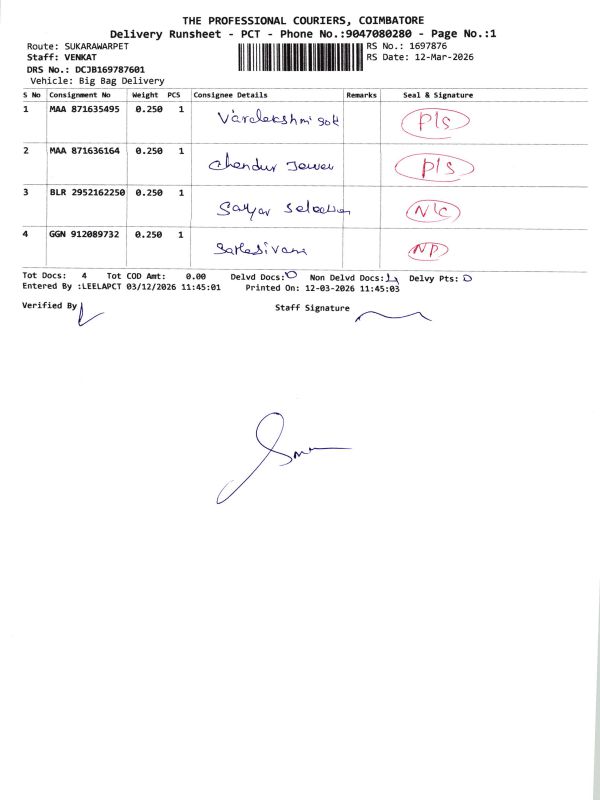 THE PROFESSIONAL COURIERS, COIMBATORE
Delivery Runsheet - PCT - Phone No.:9047080280 - Page No.:1
Route: SUKARAWARPET RS No.: 1697876
Staff: VENKAT RS Date: 12-Mar-2026
DRS No.: DCJB169787601
Vehicle: Big Bag Delivery
S No Consignment No Weight PCS Consignee Details Remarks Seal & Signature
1 MAA 871635495 0.250 1 P/S
2 MAA 871636164 0.250 1 Chendur Jewel P/S
3 BLR 2952162250 0.250 1 Selection N/C
4 GGN 912089732 0.250 1 NP
Tot Docs: 4 Tot COD Amt: 0.00 Delvd Docs: 0 Non Delvd Docs: 4 Delvy Pts: 0
Entered By :LEELAPCT 03/12/2026 11:45:01 Printed On: 12-03-2026 11:45:03
Verified By Staff Signature